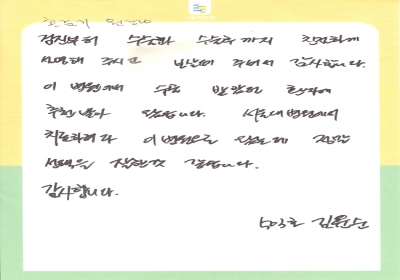 검진부터 수술과 수술후 까지 친절하게
설명해 주시고 주셔서 감사합니다.
이 병원에서 수술 받았던 환자에
추천 받아 왔습니다. 서울대병원에서
치료하려다 이 병원으로 왔는데 정말
선택을 잘한것 같습니다.
감사합니다.
김윤순